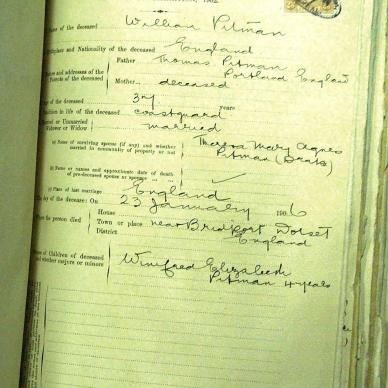 1902.
Name of the deceased William Pitman
Birthplace and Nationality of the deceased England
Names and addresses of the Parents of the deceased
Father Thomas Pitman
Portland England
Mother deceased
Age of the deceased years
Condition in life of the deceased coastguard
Married or Unmarried
Widower or Widow married
(a) Name of surviving spouse (if any) and whether
married in community of property or not
Theresa Mary Agnes
Pitman
(b) Name or names and approximate date of death
of pre-deceased spouse or spouses
(c) Place of last marriage England
The day of the decease: On 23 January 1906
Where the person died
House
Town or place near Bridport Dorset
District England
Names of Children of deceased
and whether majors or minors
Winifred Elizabeth
Pitman 4 years